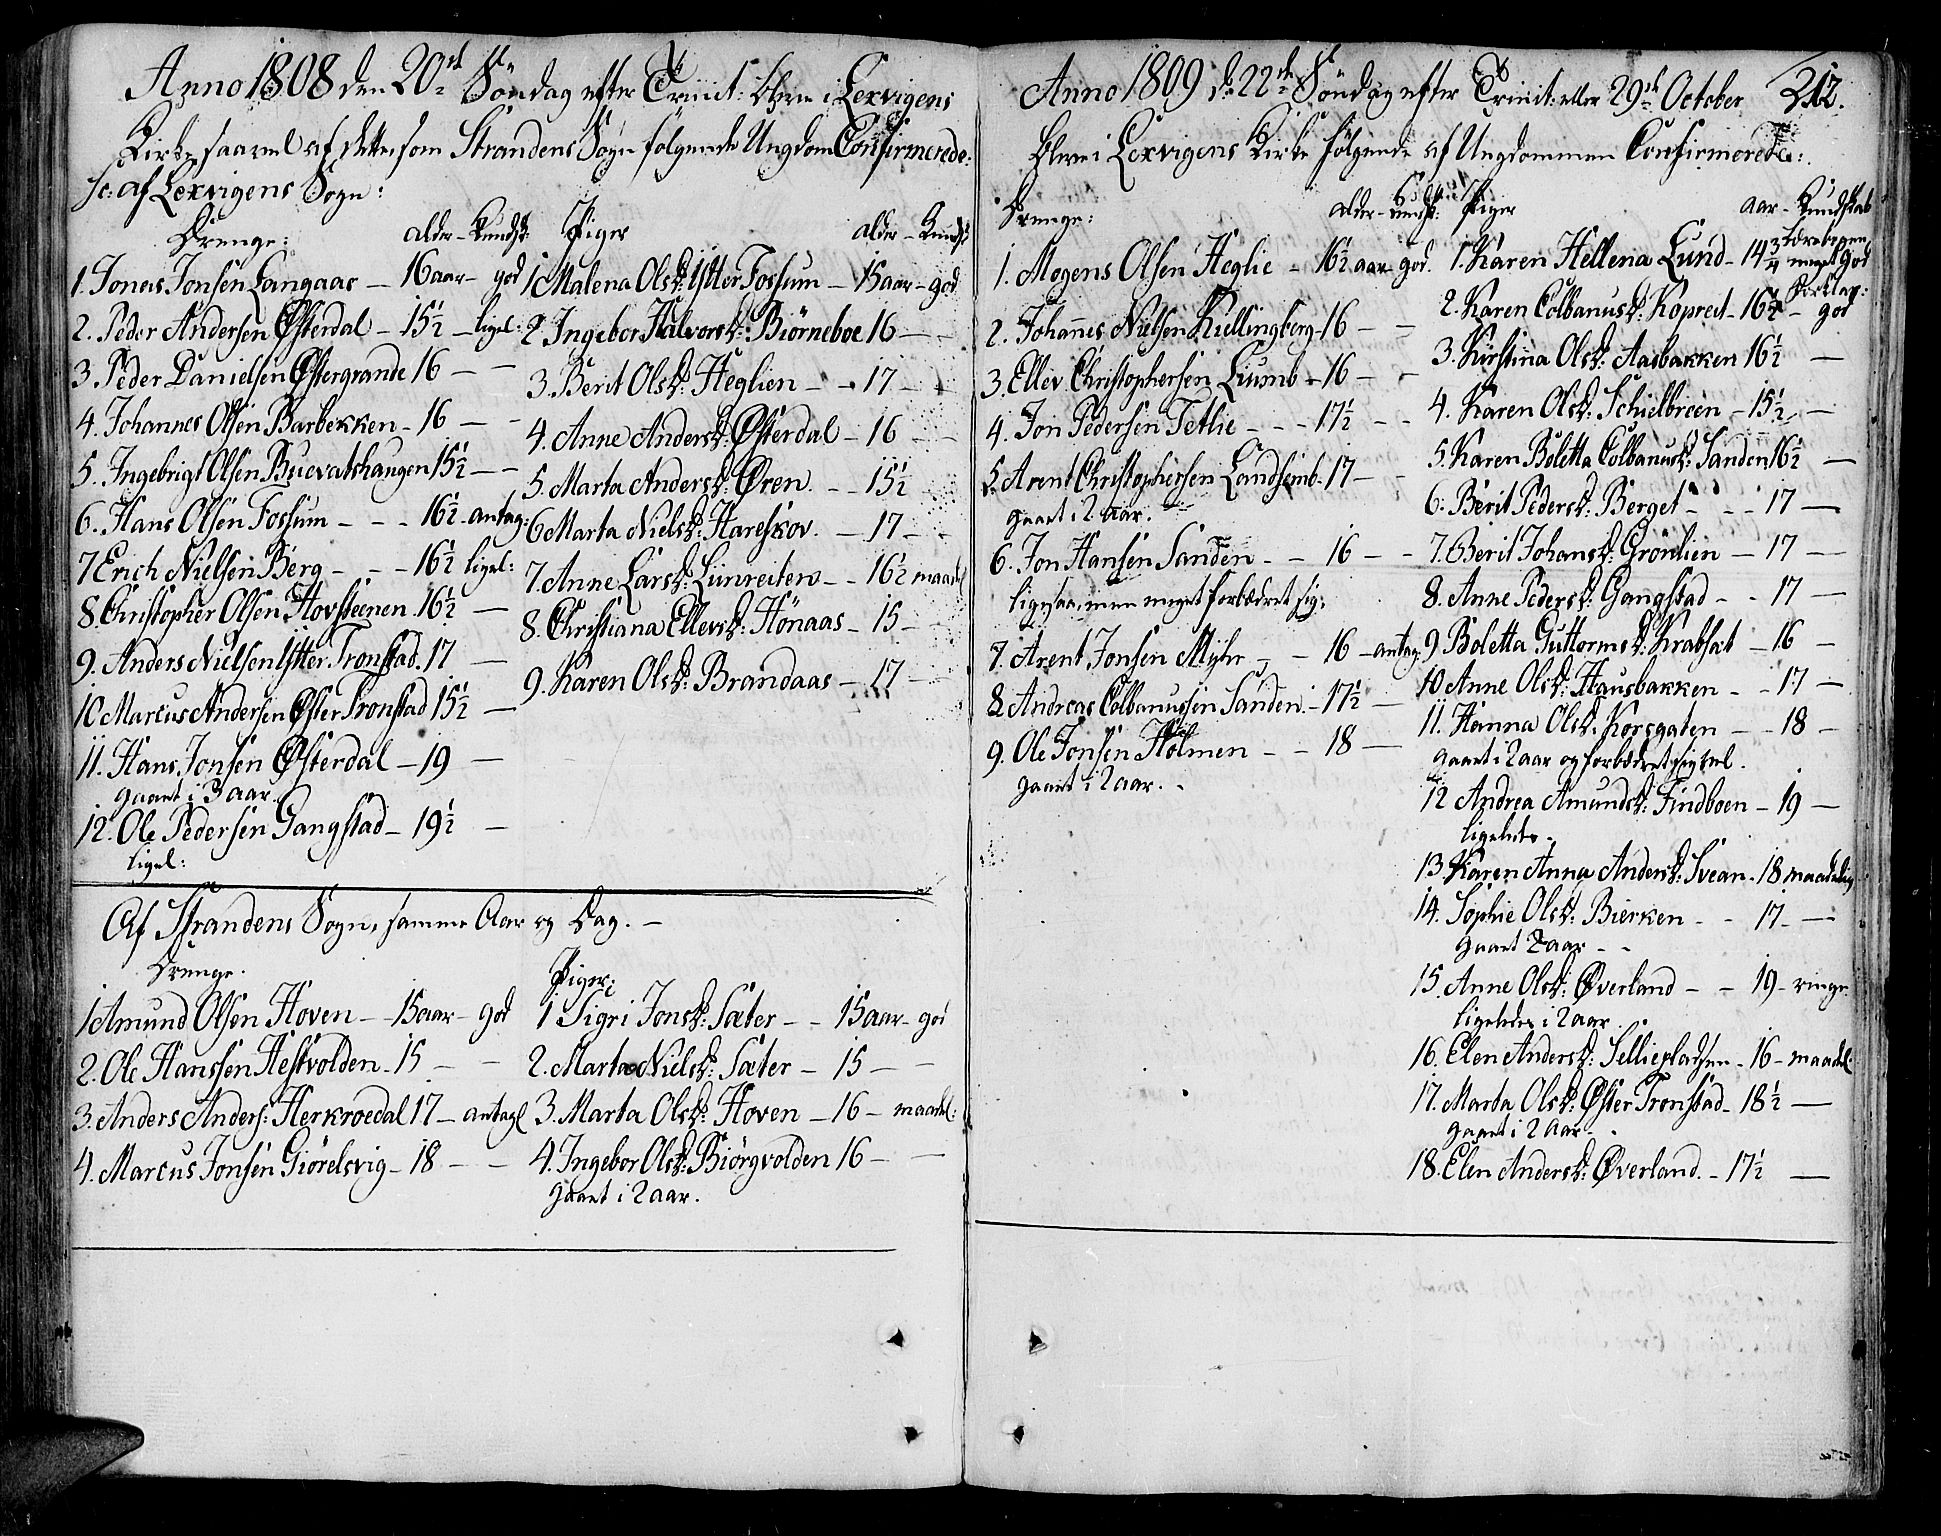 Anno 1808 den 20de Søndag efter Trinit: bleve i Lexvigens
Kirke, saavel af dette, som Strandens Sogn følgende Ungdom Confirmerede:
sc: af Lexvigens Sogn:
Drenge: alder - Kundsk:
1. Jonas Jonsen Langaas - 16 aar - god
2. Peder Andersen Østerdal - 15½ - ligel:
3. Peder Danielsen Østergrande 16 - -
4. Johannes Olsen Barbekken - 16 - -
5. Ingebrigt Olsen Buevatshaugen 15½ - -
6. Hans Olsen Fossum - - - 16½ - antag:
7 Erich Nielsen Berg - - - 16½ ligel:
8. Christopher Olsen Hovsteenen 16½ -
9. Anders Nielsen Ytter Tronstad. 17 -
10 Marcus Andersen Øster Tronstad 15½ -
11. Hans Jonsen Østerdal - 19 -
gaaet i 3 aar.
12. Ole Pedersen Gangstad - 19½ -
ligel:
Piger alder - Kundsk:
1 Malena Olsd: Ytter Fossum - 15 aar - god
2. Ingebor Halvorsd: Biørneboe 16 - -
3. Berit Olsd: Heglien - - 17 - -
4. Anne Andersd: Østerdal - 16 - -
5. Marta Andersd: Øren. - - 15½
6 Marta Nielsd: Hareskov. - 17 - -
7. Anne Larsd: Liinreiten - - 16½ maadel
8. Christiana Ellevsd: Hönaas - 15 - -
9. Karen Olsd: Brandaas - 17 - -
Af Strandens Sogn, samme Aar og Dag. -
Drenge.
1 Amund Olsen Hoven - 15 aar - god
2. Ole Hanssen Hestvolden - 15 - -
3. Anders Anders: Herkroedal 17 - antagl
4. Marcus Jonsen Giørelsvig - 18 - -
Piger:
1 Sigri Jonsd: Sæter - - 15 aar - god
2. Marta Nielsd: Sæter - 15 - -
3. Marta Olsd: Hoven - 16 - maadel:
4. Ingebor Olsd: Biørgvolden 16 - -
gaaet i 2 aar.
Anno 1809 d: 22de Søndag efter Trinit: eller 29de October 212.
bleve i Lexvigens Kirke følgende af Ungdommen Confirmerede:
Drenge: alder - Kundsk:
1. Mogens Olsen Heglie - 16½ aar - god.
2. Johannes Nielsen Killingberg - 16 - -
3. Ellev Christophersen Liumb - 16 - -
4. Jon Pedersen Tetlie - - - 17½ - -
5. Arent Christophersen Landsemb. 17 - -
gaaet i 2 aar.
6. Jon Hansen Sanden - - 16 - -
ligesaa, men meget forbedret sig.
7. Arent Jonsen Myhr - - 16 - antag.
8 Andreas Colbanussen Sanden - 17½ -
9. Ole Jonsen Holmen - - 18 -
gaaet i 2 aar.
Piger aar - Kundskab
1. Karen Hellena Lund - 14¾ Lærebogen, meget god
2. Karen Colbanusd: Kopreit - 16¾ - Forklar: god
3. Kirstina Olsd: Aasbakken 16½ -
4. Karen Olsd: Schielbreen - 15½ -
5. Karen Boletta Colbanusd: Sanden 16½ -
6. Berit Pedersd: Berget - - - 17 -
7. Berit Johansd: Grönlien - 17 -
8. Anne Pedersd: Gangstad - - 17 -
9 Boletta Guttormsd: Krabsæt - 16 -
10 Anne Olsd: Hausbakken - - 17 -
11. Hanna Olsd: Korsgaten - - 18 -
gaaet i 2 aar og forbedret sig vel.
12 Andrea Amundsd: Findboen - 19 -
ligeledes.
13. Karen Anna Andersd: Svean - 18 maadelig
14. Sophie Olsd: Bierken - - 17 -
gaaet 2 aar - -
15. Anne Olsd: Øverland - - 19 - ringe.
ligeledes i 2 aar.
16. Elen Andersd: Selliepladsen - 16 - maadel:
17. Marta Olsd: Øster Tronstad - 18½ -
gaaet i 2 aar.
18. Elen Andersd: Øverland. - 17½ -